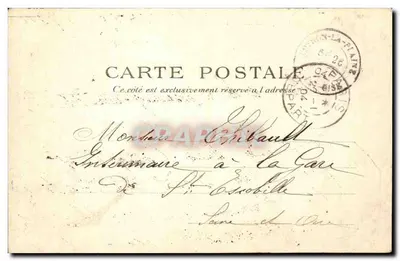 CARTE POSTALE
Ce côté est exclusivement réservé à l'adresse
Monsieur Thibault
Intérimaire à la Gare
de St Escobille
Seine et Oise